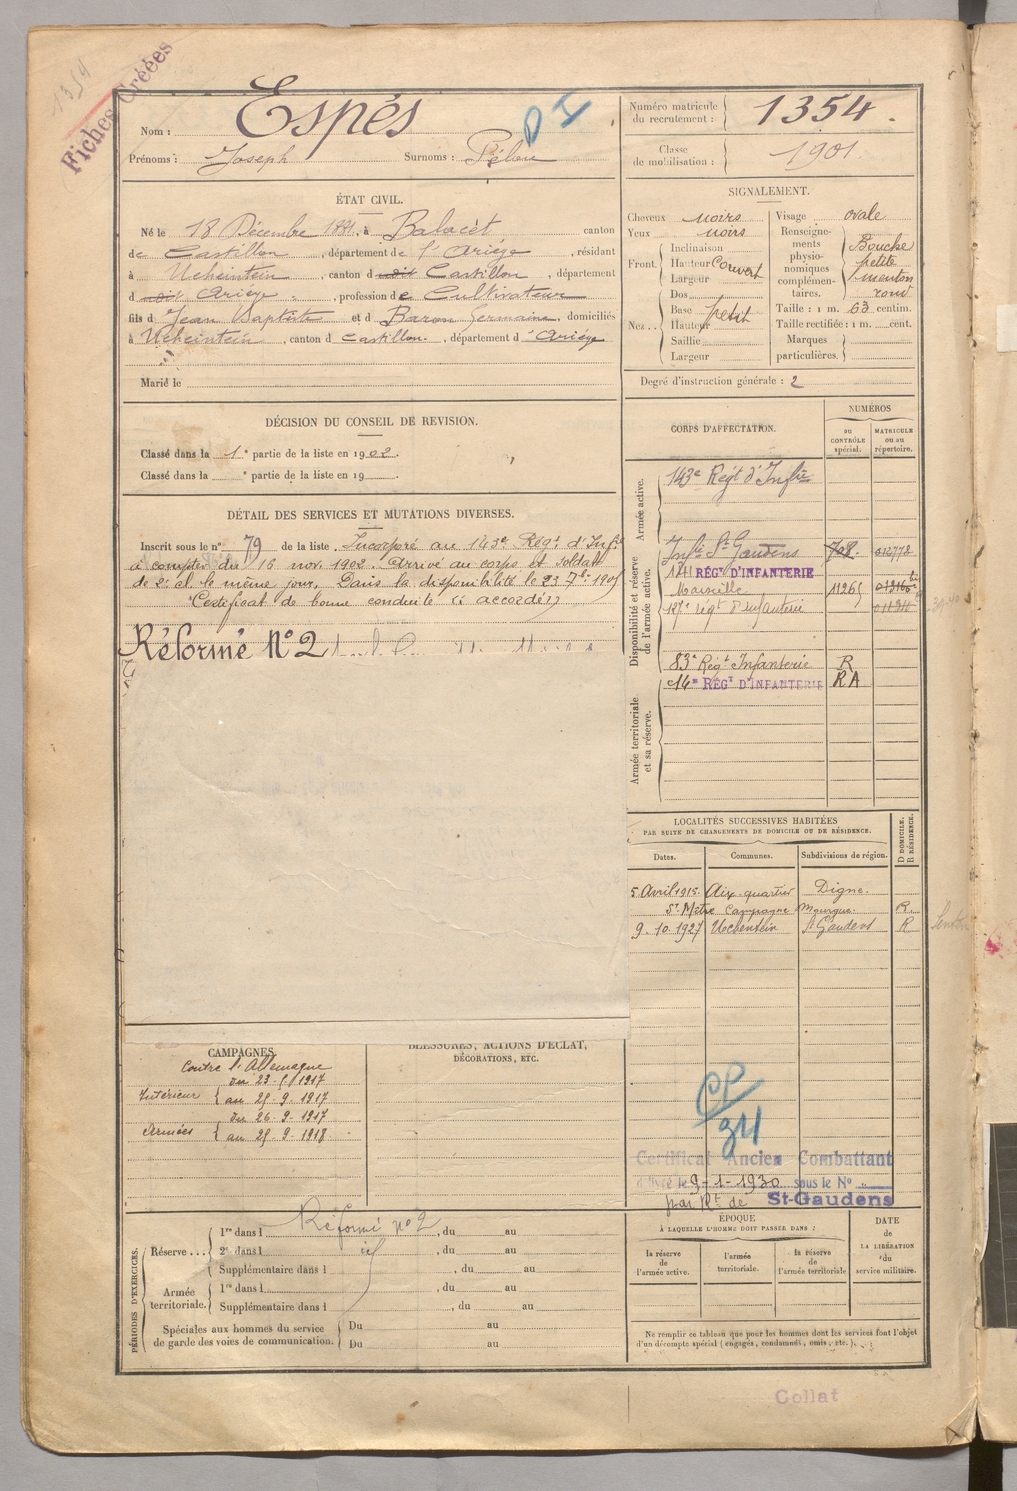 1354
Fiches Créées
Nom : Espés
D I
Prénoms : Joseph Surnoms :
Numéro matricule du recrutement : 1354.
Classe de mobilisation : 1901
ÉTAT CIVIL.
Né le 18 Décembre 1881, à Balacèt canton
de Castillon, département de l'Ariége, résidant
à Ucheintein, canton d dit Castillon, département
d dit Ariège, profession de Cultivateur
fils d Jean Baptiste et d Baron Germaine, domiciliés
à Ucheintein, canton d Castillon, département d' Ariége
Marié le
SIGNALEMENT.
Cheveux noirs
Yeux noirs
Front. Inclinaison
Hauteur Couvert
Largeur
Dos
Nez.. Base petit
Hauteur
Saillie
Largeur
Visage ovale
Renseignements physionomiques complémentaires. Bouche petite menton rond
Taille : 1 m. 63 centim.
Taille rectifiée : 1 m. cent.
Marques particulières.
Degré d'instruction générale : 2
DÉCISION DU CONSEIL DE REVISION.
Classé dans la 1e partie de la liste en 1902.
Classé dans la e partie de la liste en 19
DÉTAIL DES SERVICES ET MUTATIONS DIVERSES.
Inscrit sous le n° 79 de la liste. Incorporé au 143e Régt d'Infie
à compter du 16 nov. 1902. Arrivé au corps et soldat
de 2e cl. le même jour. Dans la disponibilité le 23 7bre 1905
"Certificat de bonne conduite "accordé"
Réformé N° 2
CORPS D'AFFECTATION.
NUMÉROS
au CONTRÔLE spécial.
MATRICULE ou au répertoire.
Armée active.
143e Régt d'Infie
Disponibilité et réserve de l'armée active.
Infie St Gaudens 708.
141 RÉGT D'INFANTERIE
Marseille 11265
régt d'Infanterie
83e Régt Infanterie R
14e RÉGT D'INFANTERIE RA
Armée territoriale et sa réserve.
LOCALITÉS SUCCESSIVES HABITÉES
PAR SUITE DE CHANGEMENTS DE DOMICILE OU DE RÉSIDENCE.
D DOMICILE. R RÉSIDENCE.
Dates. Communes. Subdivisions de région.
5 Avril 1915. Aix-quartier Digne.
St Mitre Campagne R.
9.10.1927 Uchentein St Gaudens R
CAMPAGNES
Contre l'Allemagne
Intérieur du 23-5-1917
au 25-9-1917
Armées du 26-9-1917
au 25-9-1918
BLESSURES, ACTIONS D'ÉCLAT,
DÉCORATIONS, ETC.
CP/34
Certificat Ancien Combattant
délivré le 9-1-1930 sous le No
par Rt de St-Gaudens
PÉRIODES D'EXERCICES.
Réserve... 1re dans l Réformé n° 2, du au
2e dans l, du au
Supplémentaire dans l, du au
Armée territoriale. 1re dans l, du au
Supplémentaire dans l, du au
Spéciales aux hommes du service de garde des voies de communication. Du au
Du au
ÉPOQUE
À LAQUELLE L'HOMME DOIT PASSER DANS :
la réserve de l'armée active.
l'armée territoriale.
la réserve de l'armée territoriale
DATE de LA LIBÉRATION du service militaire.
Ne remplir ce tableau que pour les hommes dont les services font l'objet
d'un décompte spécial (engagés, condamnés, omis, etc.).
Collat